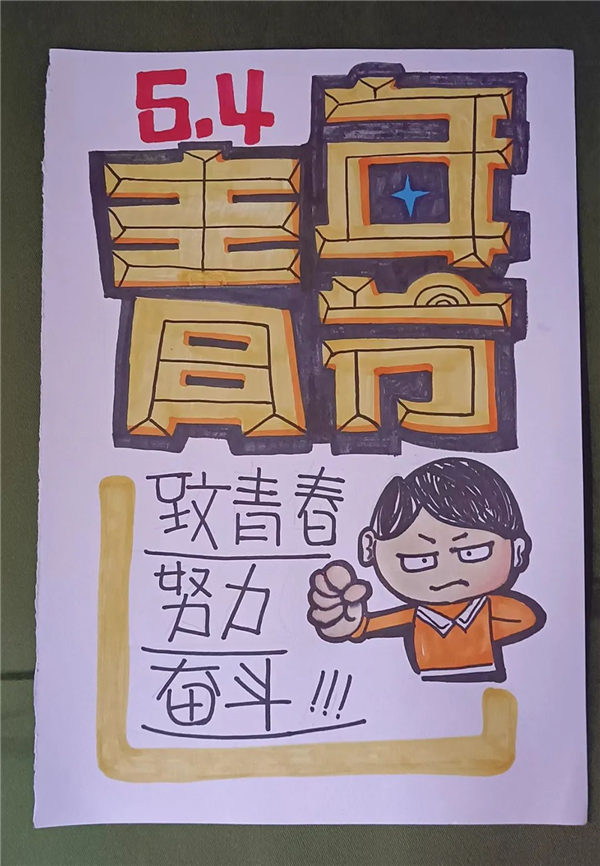 5.4
青年节
致青春
努力
奋斗!!!